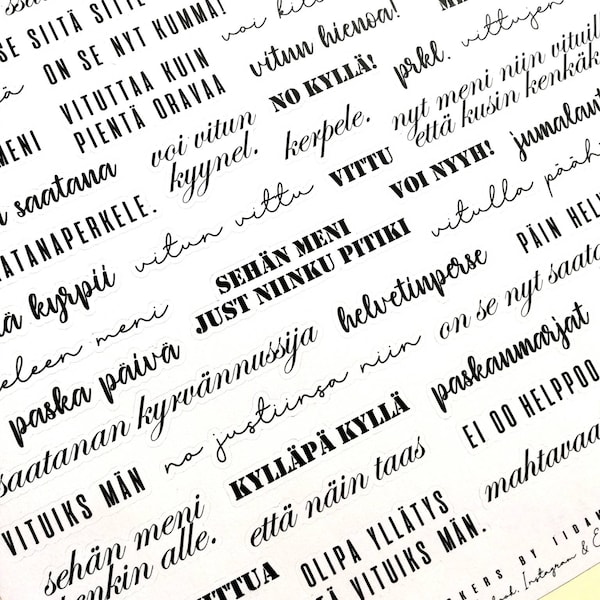 SE SIITÄ SITTE
ON SE NYT KUMMA!
voi
vitun hienoa!
vittujen
MENI
VITUTTAA KUIN
PIENTÄ ORAVAA
NO KYLLÄ!
prkl.
nyt meni niin
että kusin
saatana
voi vitun
kyynel.
kerpele.
VITTU
VOI NYYH!
SATANAPERKELE.
vitun vittu
SEHÄN MENI
JUST NIINKU PITIKI
vitulla
PÄIN
kyrpii
meni
paska päivä
helvetinperse
on se nyt
saatanan kyrvännussija
no justiinsa niin
paskanmarjat
VITUIKS MÄN
KYLLÄPÄ KYLLÄ
EI OO HELPPOO
sehän meni
penkin alle.
että näin taas
mahtavaa
OLIPA YLLÄTYS
VITUIKS MÄN.
BY
Instagram &